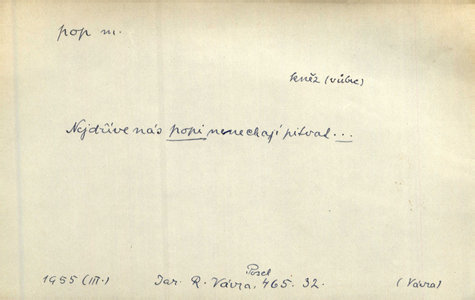 pop m.
kněz (vůbec)
Nejdříve nás popi nenechají pitvat...
1955 (III.) Jar. R. Vávra, Posel 465. 32. (Vávra)